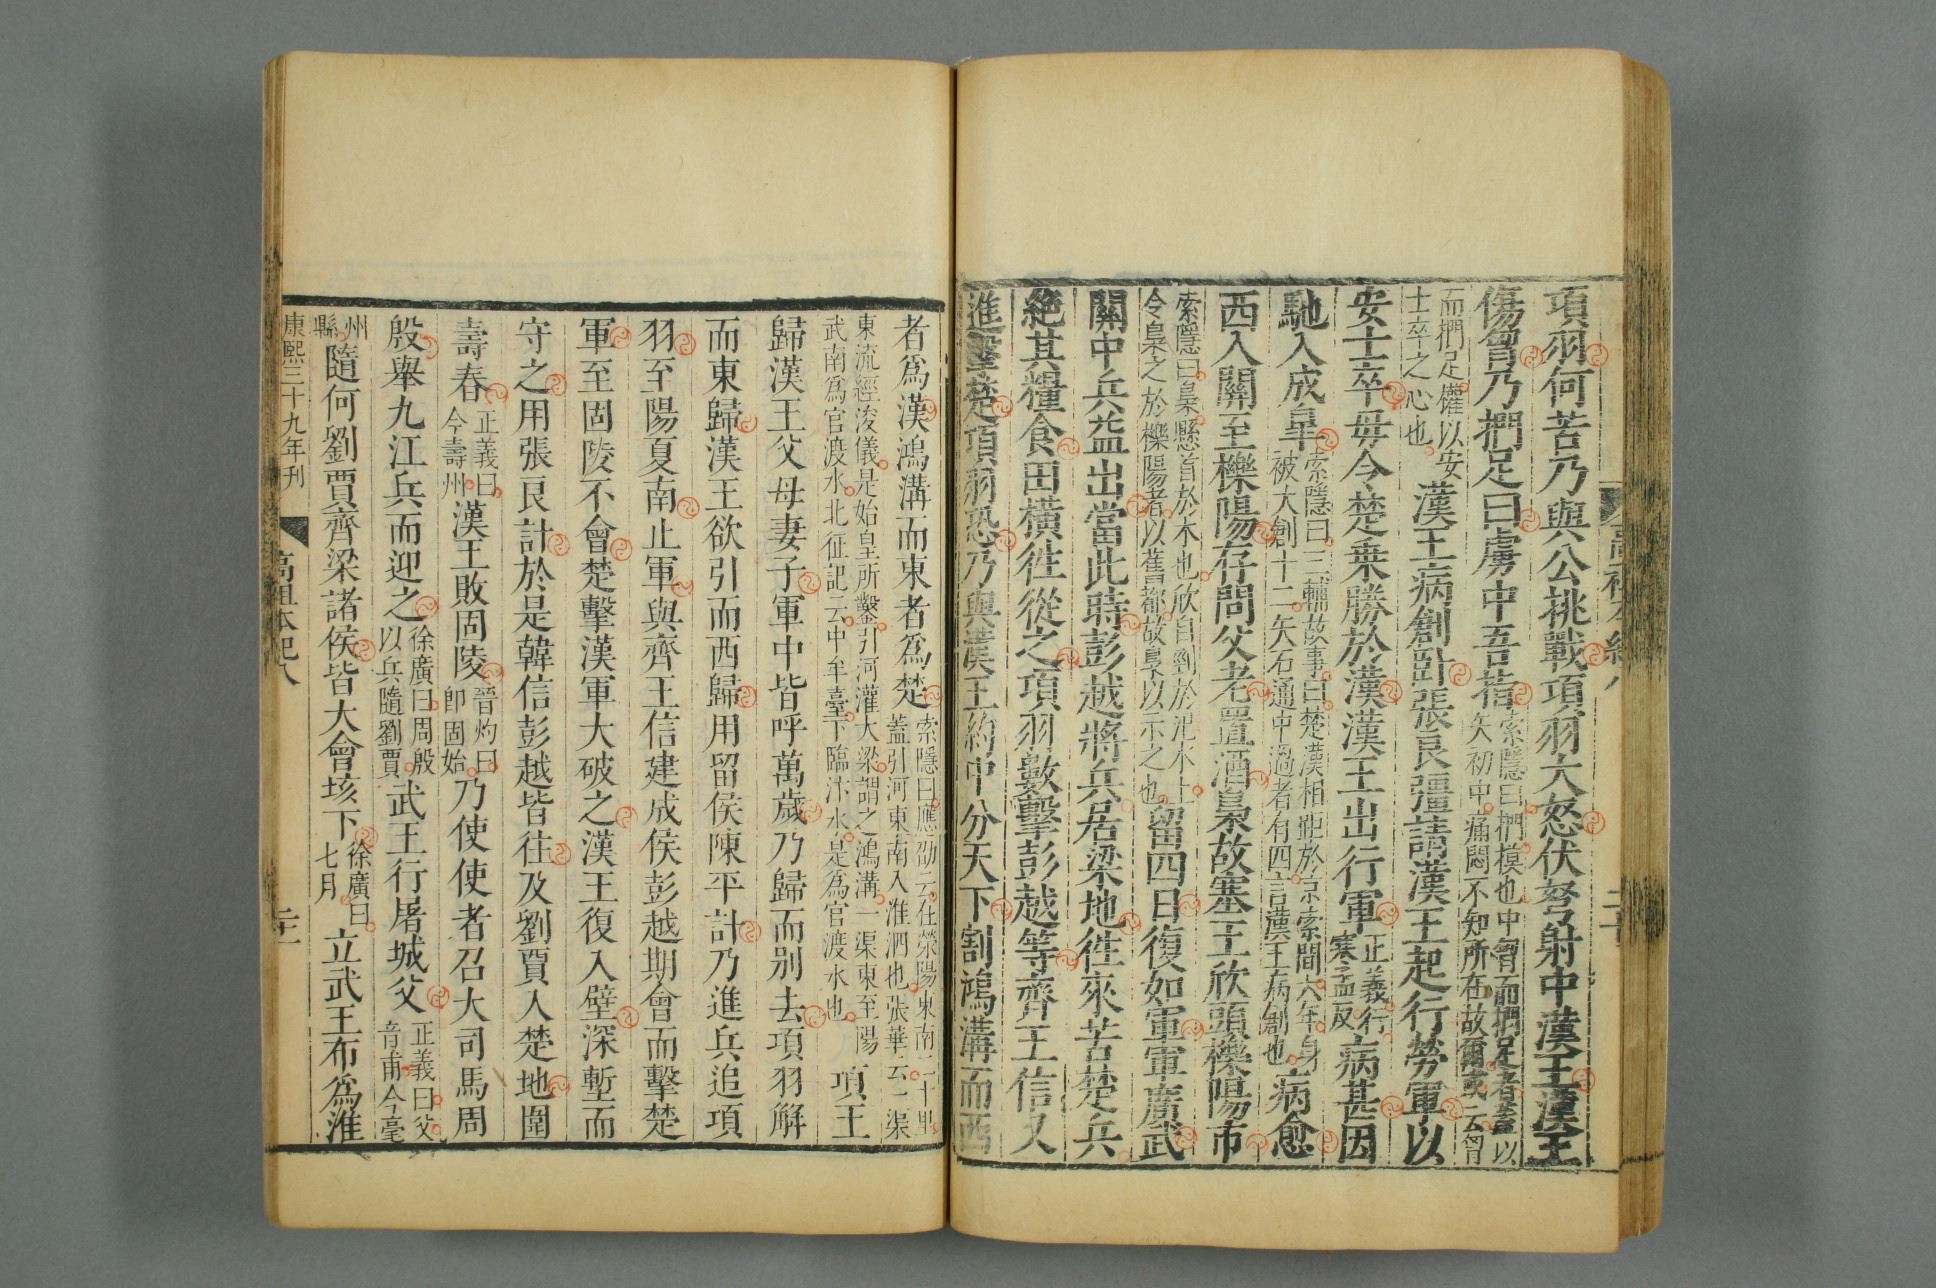 項羽何苦乃與公挑戰項羽大怒伏弩射中漢王漢王
傷胷乃捫足曰虜中吾指索隱曰捫摸也中胷而捫足者蓋以矢初中痛悶不知所在故爾或云胷
而捫足權以安士卒之心也漢王病創臥張良彊請漢王起行勞軍以
安士卒毋令楚乗勝於漢漢王出行軍正義行寒孟反病甚因
馳入成臯索隱曰三輔故事曰楚漢相距於京索間六年身被大創十二矢石通中過者有四言漢王病創也病愈
西入關至櫟陽存問父老置酒梟故塞王欣頭櫟陽市
索隱曰梟懸首於木也欣自剄於汜水上令梟之於櫟陽者以舊都故梟以示之也留四日復如軍軍廣武
關中兵益出當此時彭越將兵居梁地徃來苦楚兵
絕其糧食田橫徃從之項羽數擊彭越等齊王信又
進擊楚項羽恐乃與漢王約中分天下割鴻溝而西
者爲漢鴻溝而東者爲楚索隱曰應劭云在滎陽東南二十里蓋引河東南入淮泗也張華云一渠
東流經浚儀是始皇所鑿引河灌大梁謂之鴻溝一渠東至陽武南爲官渡水北征記云中牟臺下臨汴水是爲官渡水也項王
歸漢王父母妻子軍中皆呼萬歲乃歸而别去項羽解
而東歸漢王欲引而西歸用留侯陳平計乃進兵追項
羽至陽夏南止軍與齊王信建成侯彭越期會而擊楚
軍至固陵不會楚擊漢軍大破之漢王復入壁深塹而
守之用張良計於是韓信彭越皆往及劉賈入楚地圍
壽春正義曰今壽州漢王敗固陵晉灼曰卽固始乃使使者召大司馬周
殷舉九江兵而迎之徐廣曰周殷以兵隨劉賈武王行屠城父正義曰父音甫今亳
州縣隨何劉賈齊梁諸侯皆大會垓下徐廣曰七月立武王布爲淮
康熙三十九年刊
高祖本紀八